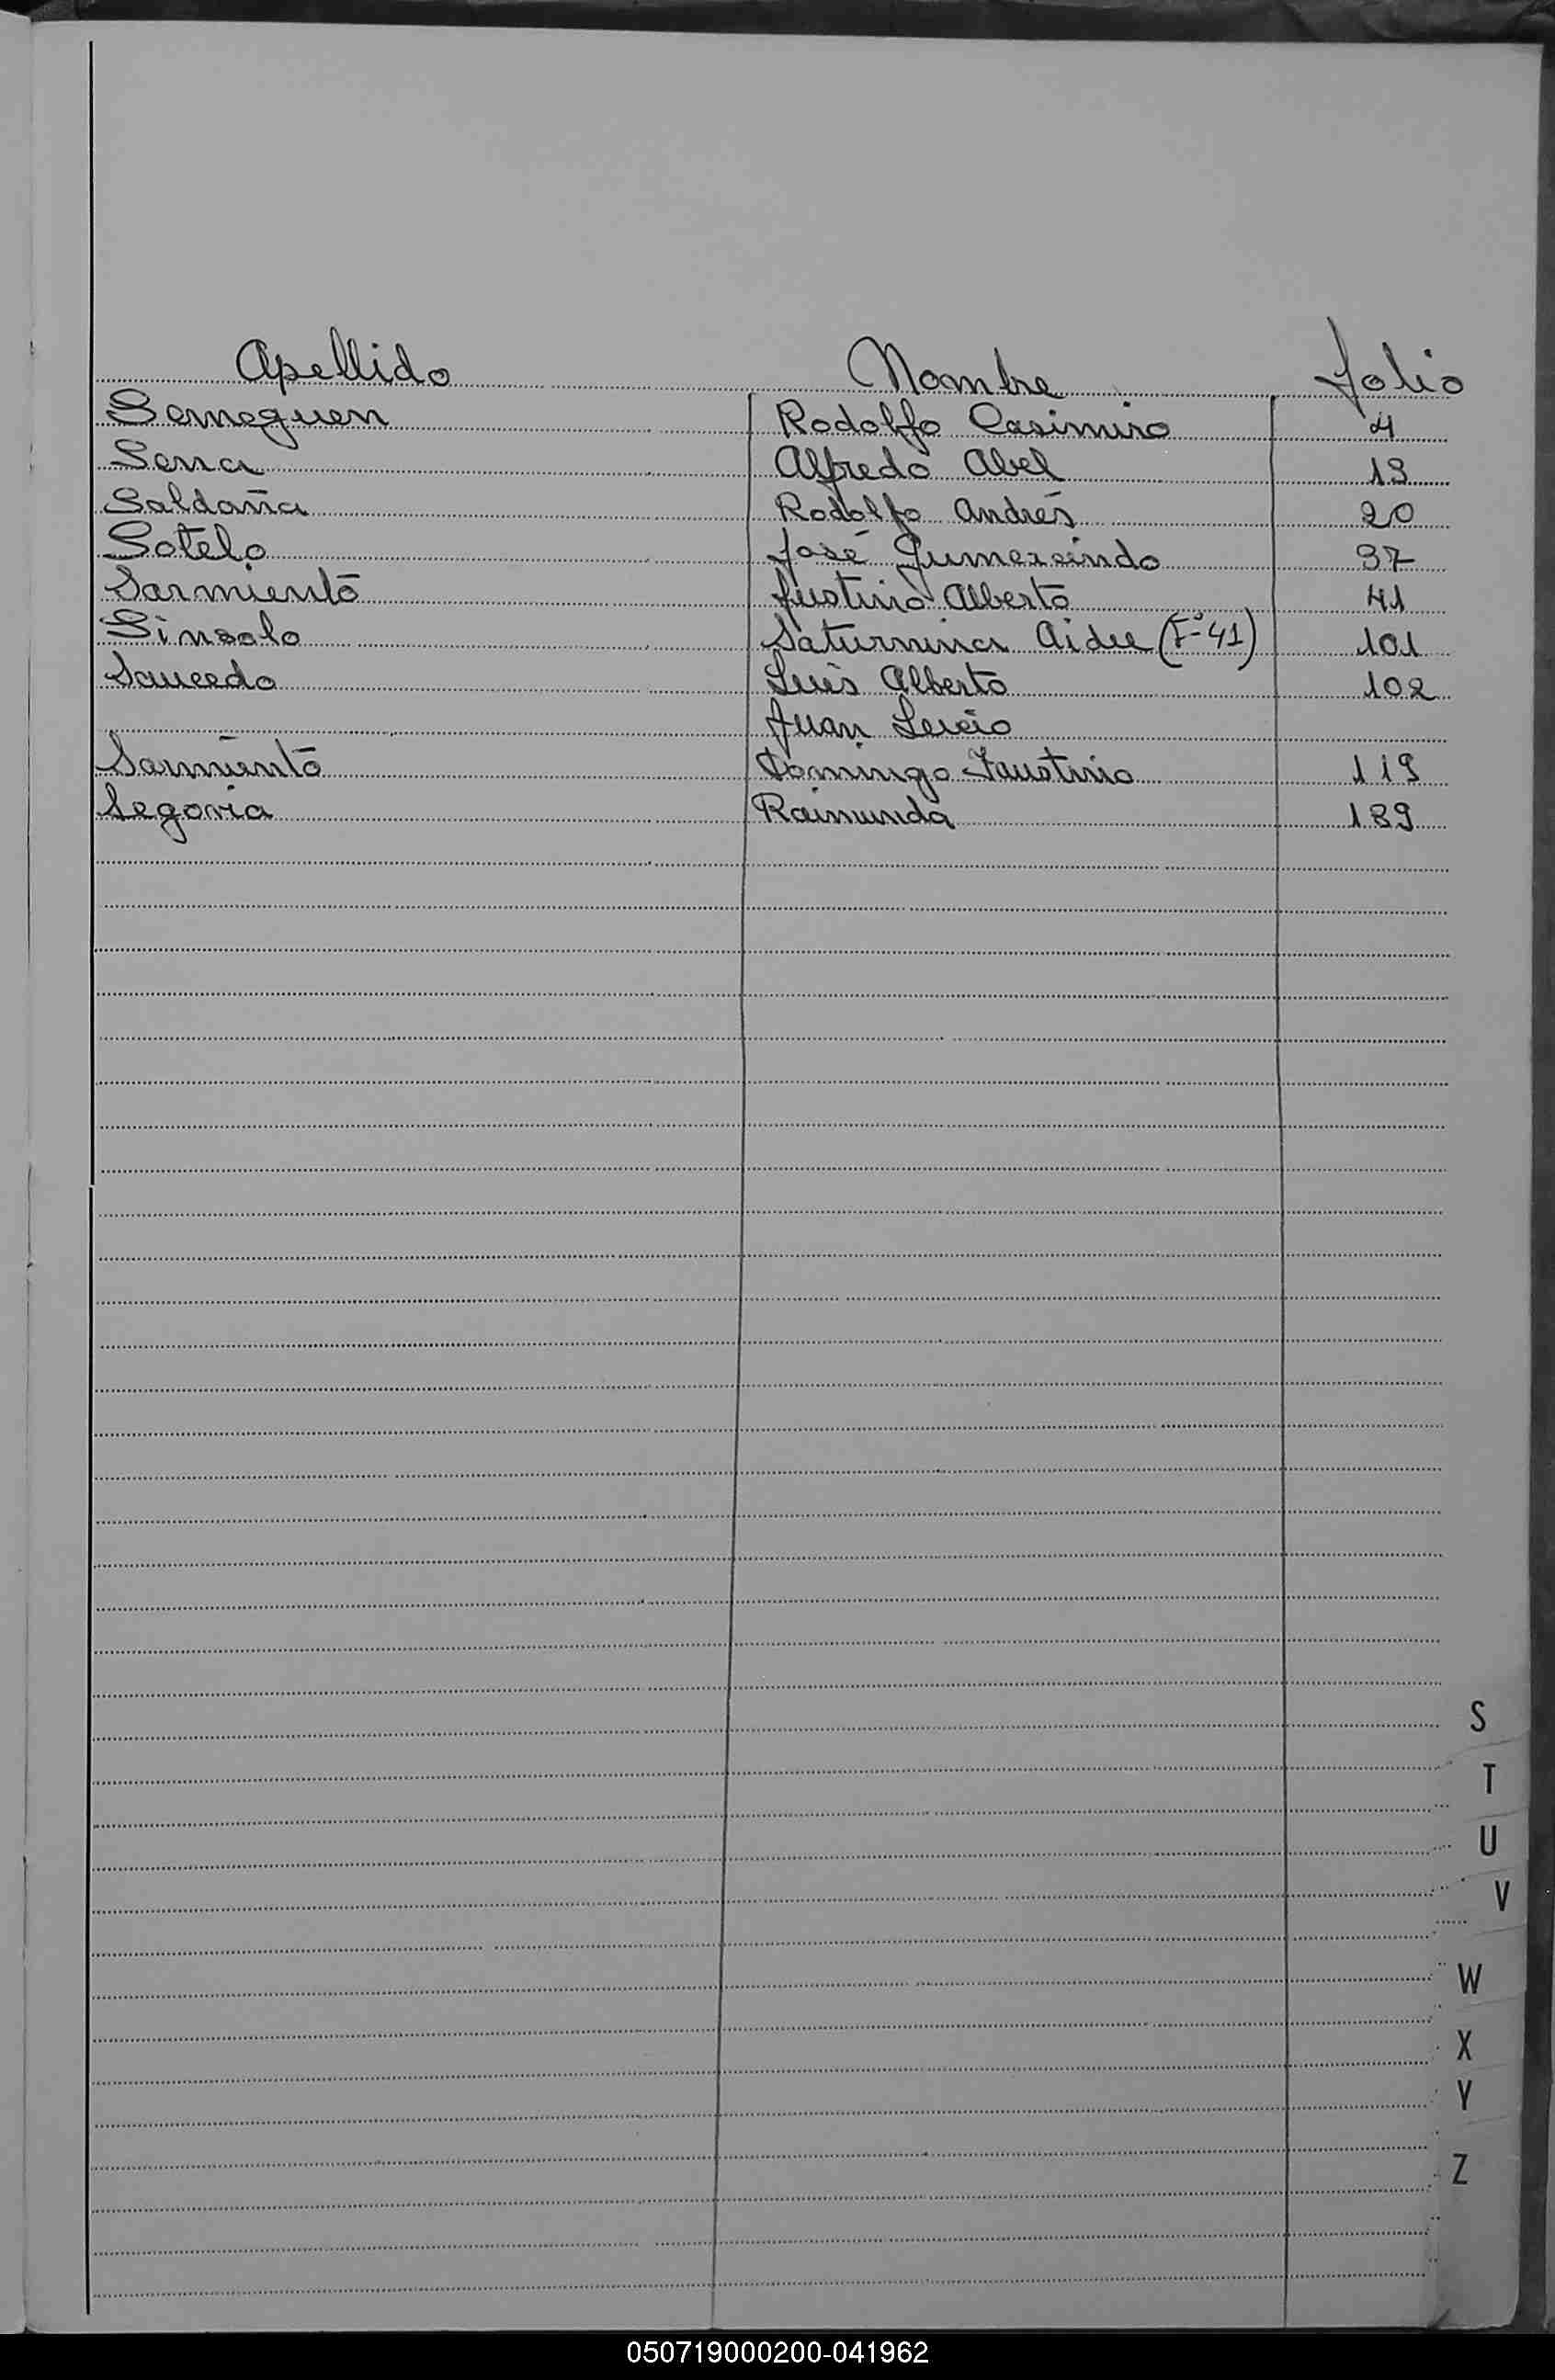 Apellido Nombre Folio
Semeguen Rodolfo Casimiro 4
Serra Alfredo Abel 19
Saldaña Rodolfo Andrés 20
Sotelo José Gumersindo 37
Sarmiento Justino Alberto 41
Sinsolo Saturnina Aidee (Fº 41) 101
Saucedo Luis Alberto 102
Juan Lucio
Sarmiento Domingo Faustino 119
Segovia Raimunda 189
S
T
U
V
W
X
Y
Z
050719000200-041962